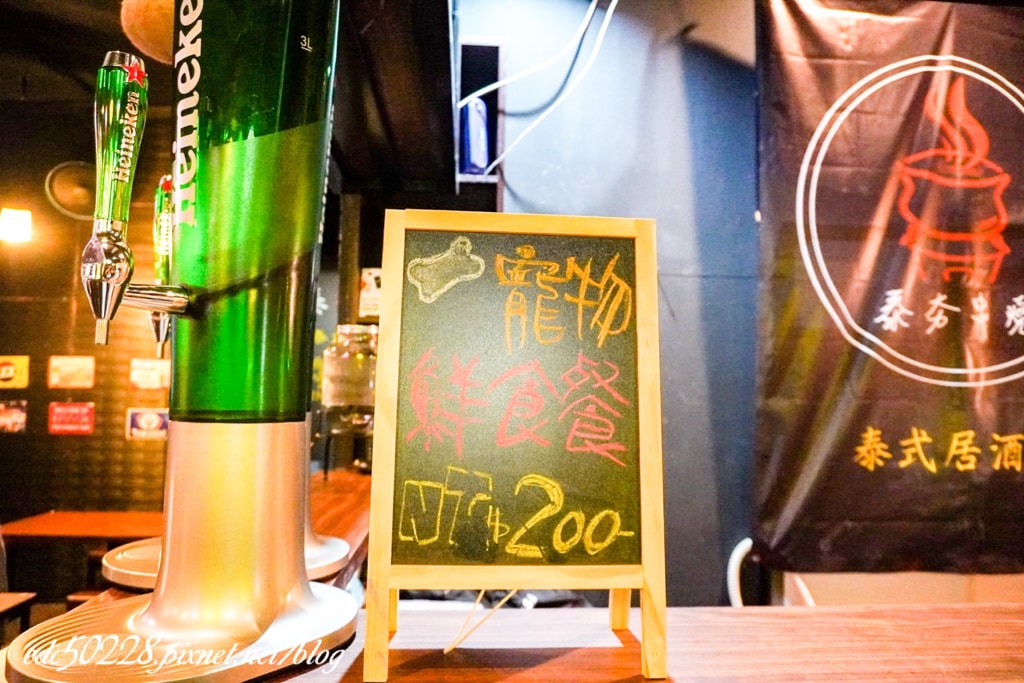 Heineken
3L
Heineke
寵物
鮮食餐
NT$200-
泰夯串燒
泰式居酒
edi50228.pixnet.net/blog